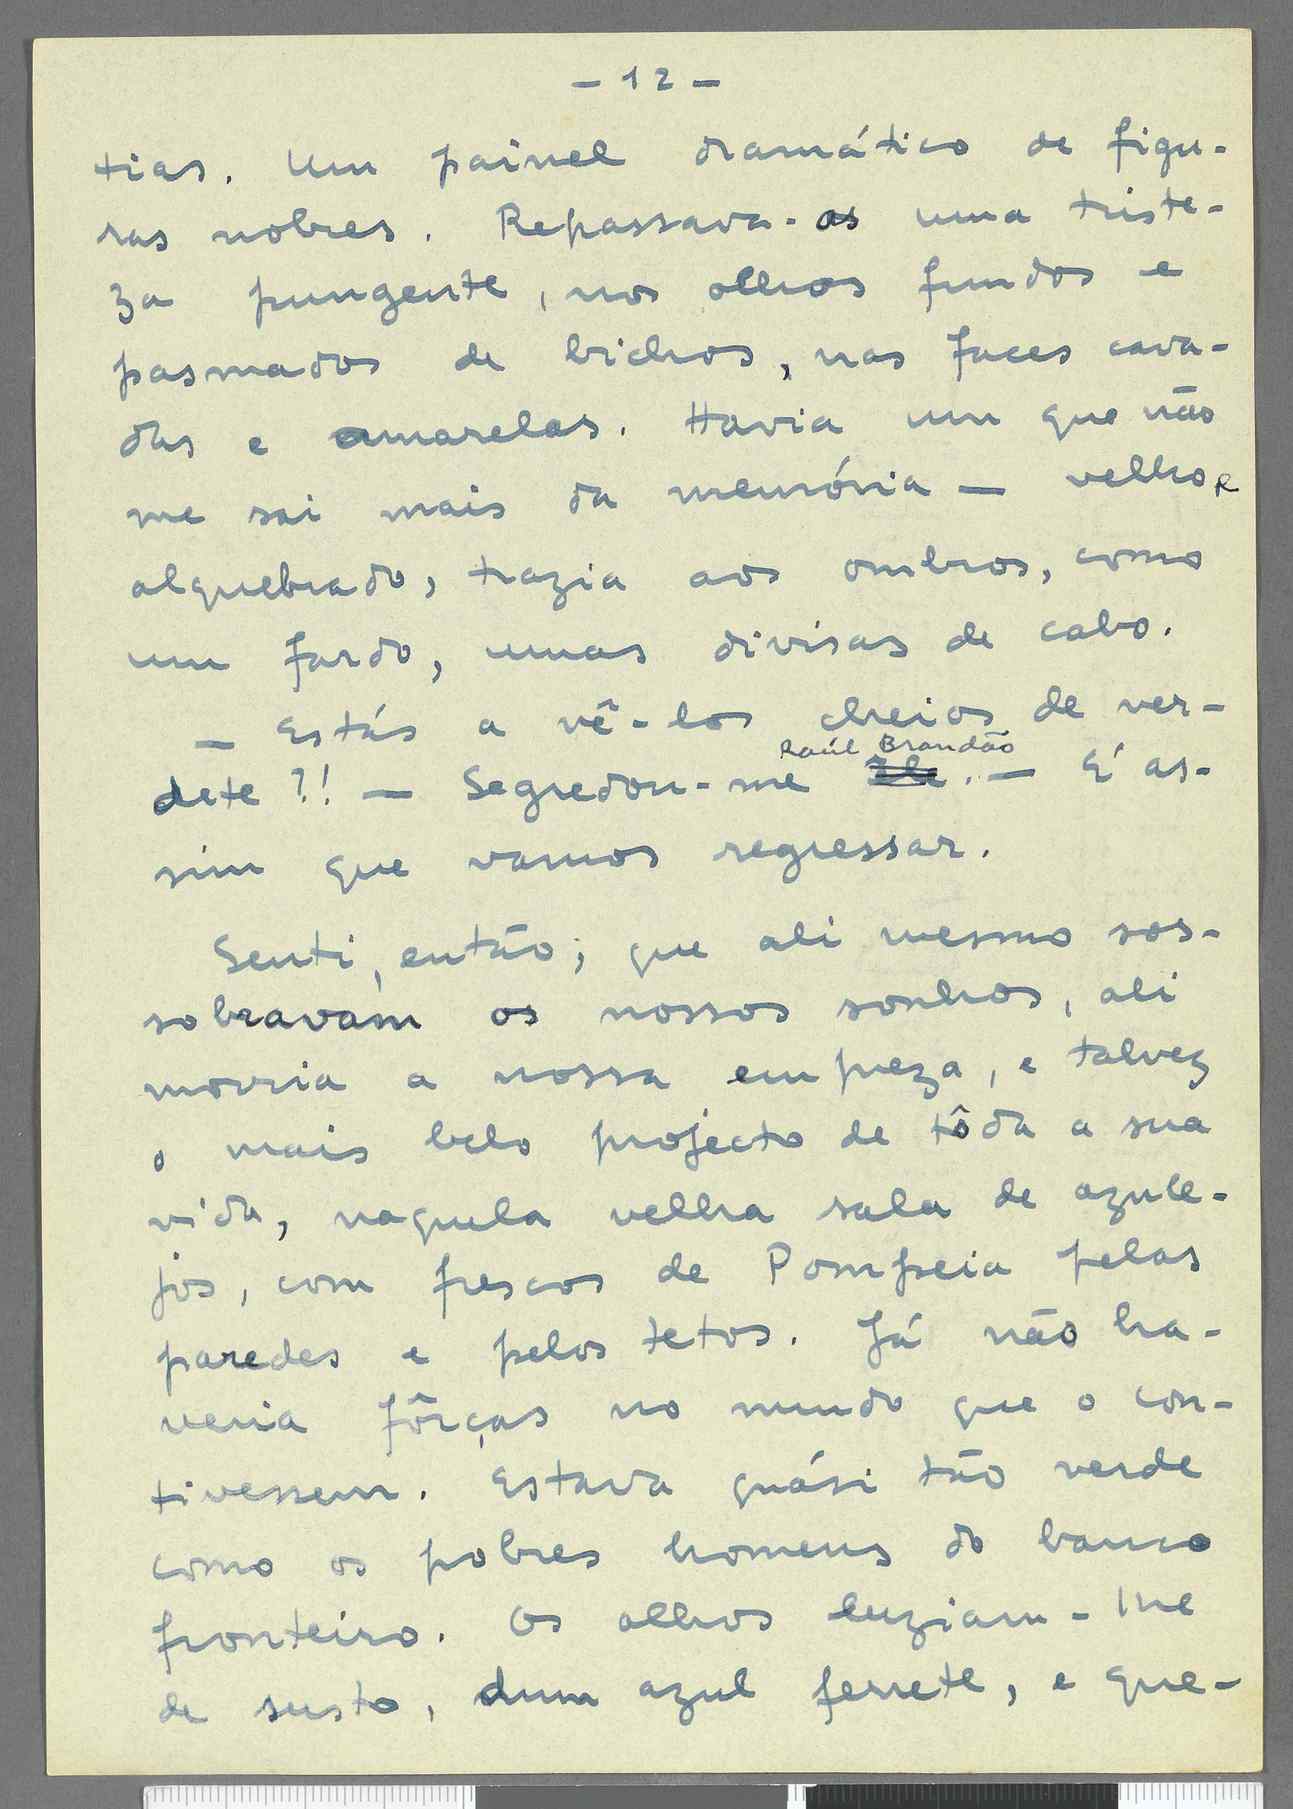 - 12 -
tias. Um painel dramático de figu-
ras nobres. Repassava-os uma triste-
za pungente, nos olhos fundos e
pasmados de bichos, nas faces cava-
das e amarelas. Havia um que não
me sai mais da memória — velho e
alquebrado, trazia aos ombros, como
um fardo, umas divisas de cabo.
— Estás a vê-los cheios de ver-
Raúl Brandão
dete?! — Segredou-me Ele. — E' as-
sim que vamos regressar.
Senti, então, que ali mesmo sos-
sobravam os nossos sonhos, ali
morria a nossa empreza, e talvez
o mais belo projecto de tôda a sua
vida, naquela velha sala de azule-
jos, com frescos de Pompeia pelas
paredes e pelos tetos. Já não ha-
veria fôrças no mundo que o con-
tivessem. Estava quási tão verde
como os pobres homens do banco
fronteiro. Os olhos luziam-lhe
de susto, dum azul ferrete, e que-